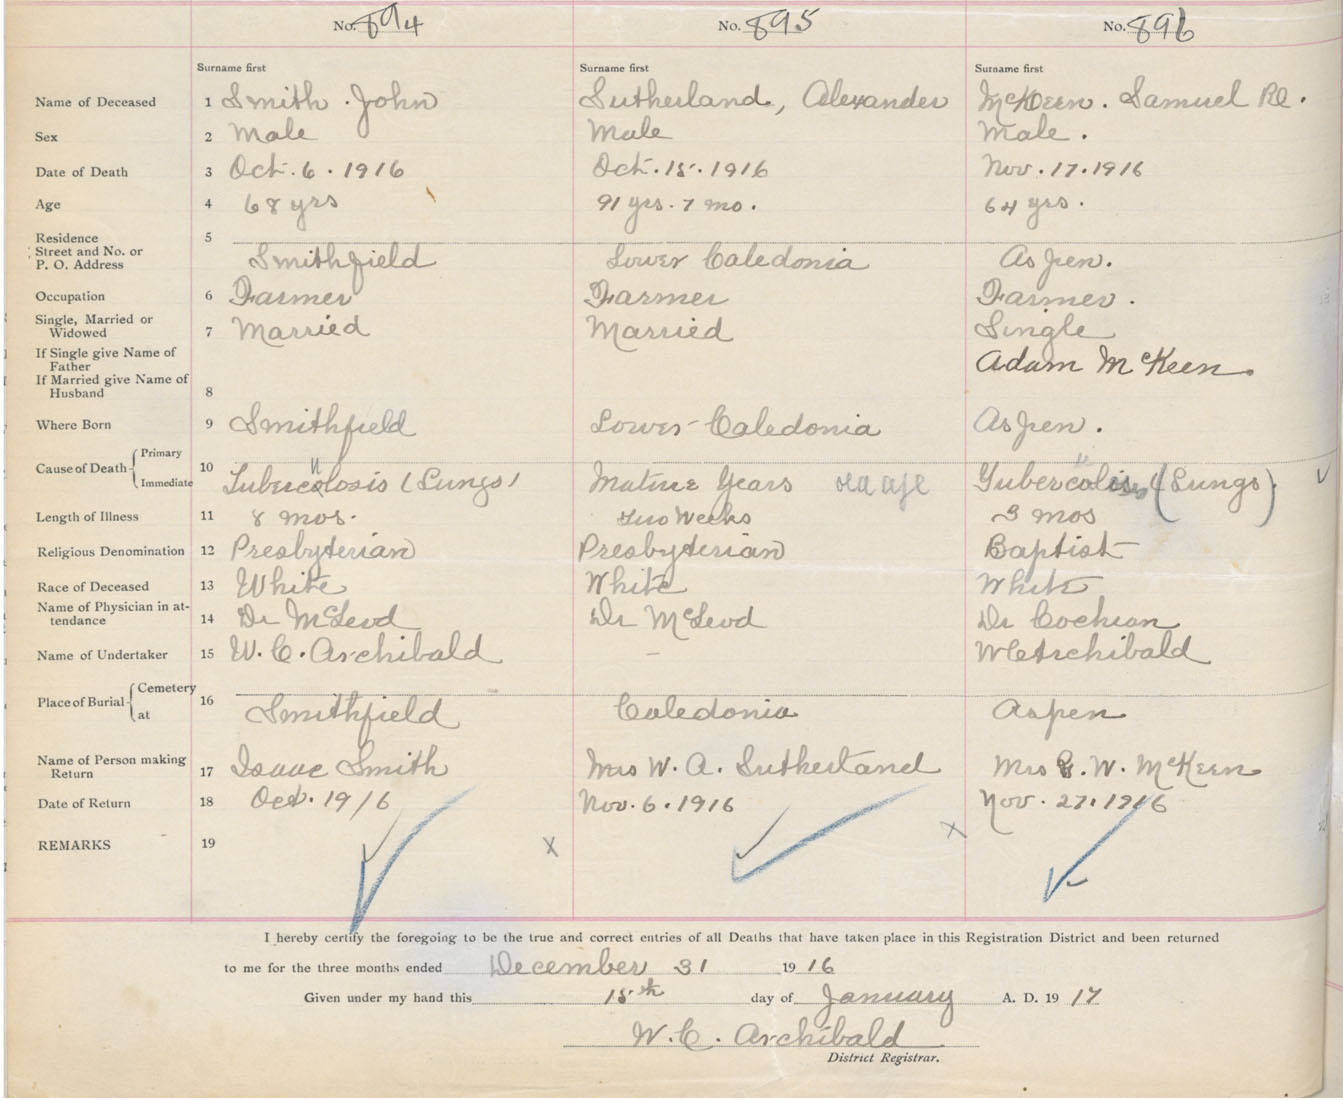 No. 894 No. 895 No. 896
Surname first Surname first Surname first
Name of Deceased 1 Smith. John Sutherland, Alexander McKeen. Samuel
Sex 2 Male Male Male.
Date of Death 3 Oct. 6. 1916 Oct. 15. 1916 Nov. 17. 1916
Age 4 68 yrs 91 yrs. 7 mo. 64 yrs.
Residence 5
Street and No. or
P. O. Address Smithfield Lower Caledonia Aspen.
Occupation 6 Farmer Farmer Farmer.
Single, Married or
Widowed 7 Married Married Single
If Single give Name of
Father Adam McKeen.
If Married give Name of
Husband 8
Where Born 9 Smithfield Lower Caledonia Aspen.
Cause of Death Primary
Immediate 10 Tuberculosis (Lungs) Mature Years old age (Lungs)
Length of Illness 11 8 mos. Two Weeks 3 mos
Religious Denomination 12 Presbyterian Presbyterian Baptist
Race of Deceased 13 White White White
Name of Physician in at-
tendance 14 Dr McLeod Dr McLeod Dr Cochran
Name of Undertaker 15 W. C. Archibald – W C Archibald
Place of Burial Cemetery
at 16 Smithfield Caledonia Aspen
Name of Person making
Return 17 Isaac Smith Mrs W. A. Sutherland Mrs W. McKeen
Date of Return 18 Oct. 1916 Nov. 6. 1916 Nov. 27. 1916
REMARKS 19 x x
I hereby certify the foregoing to be the true and correct entries of all Deaths that have taken place in this Registration District and been returned
to me for the three months ended December 31 1916
Given under my hand this 15th day of January A. D. 1917
W. C. Archibald
District Registrar.